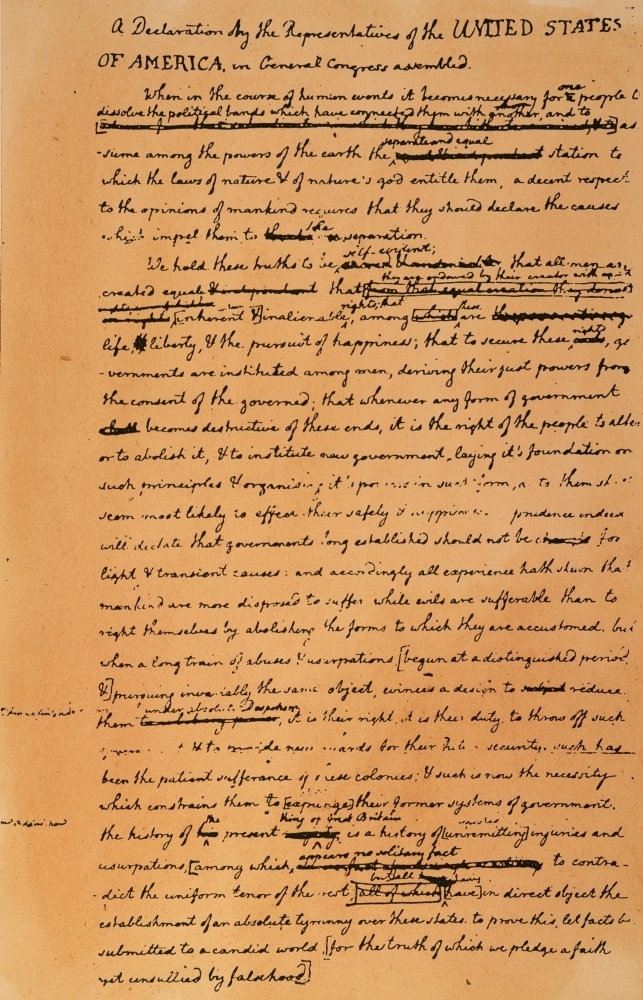 A Declaration by the Representatives of the UNITED STATES
OF AMERICA, in General Congress assembled.
When in the course of human events it becomes necessary for one people to
dissolve the political bands which have connected them with another, and to
as
separate and equal
-sume among the powers of the earth the station to
which the laws of nature & of nature's god entitle them, a decent respect
to the opinions of mankind requires that they should declare the causes
which impel them to the separation.
self-evident;
We hold these truths to be that all men are
they are endowed by their creator with
created equal & independent that [from that equal creation they derive
rights; that these
[inherent &] inalienable, among [which] are
rights
life, & liberty, & the pursuit of happiness; that to secure these ends, go
-vernments are instituted among men, deriving their just powers from
the consent of the governed; that whenever any form of government
shall becomes destructive of these ends, it is the right of the people to alter
or to abolish it, & to institute new government, laying it's foundation on
such principles & organising it's powers in such form, as to them shall
seem most likely to effect their safety & happiness. prudence indeed
will dictate that governments long established should not be changed for
light & transient causes: and accordingly all experience hath shewn that
mankind are more disposed to suffer while evils are sufferable than to
right themselves by abolishing the forms to which they are accustomed. but
when a long train of abuses & usurpations [begun at a distinguished period,
&] pursuing invariably the same object, evinces a design to subject reduce
under absolute Despotism
them to arbitrary power, it is their right, it is their duty, to throw off such
& to provide new guards for their future security. such has
been the patient sufferance of these colonies; & such is now the necessity
which constrains them to [expunge] their former systems of government.
the king of Great Britain
the history of his present majesty, is a history of [unremitting] injuries and
appears no solitary fact
usurpations, [among which, to contra-
but all
dict the uniform tenor of the rest, [all of which] [have] in direct object the
establishment of an absolute tyranny over these states. to prove this, let facts be
submitted to a candid world [for the truth of which we pledge a faith
yet unsullied by falsehood]